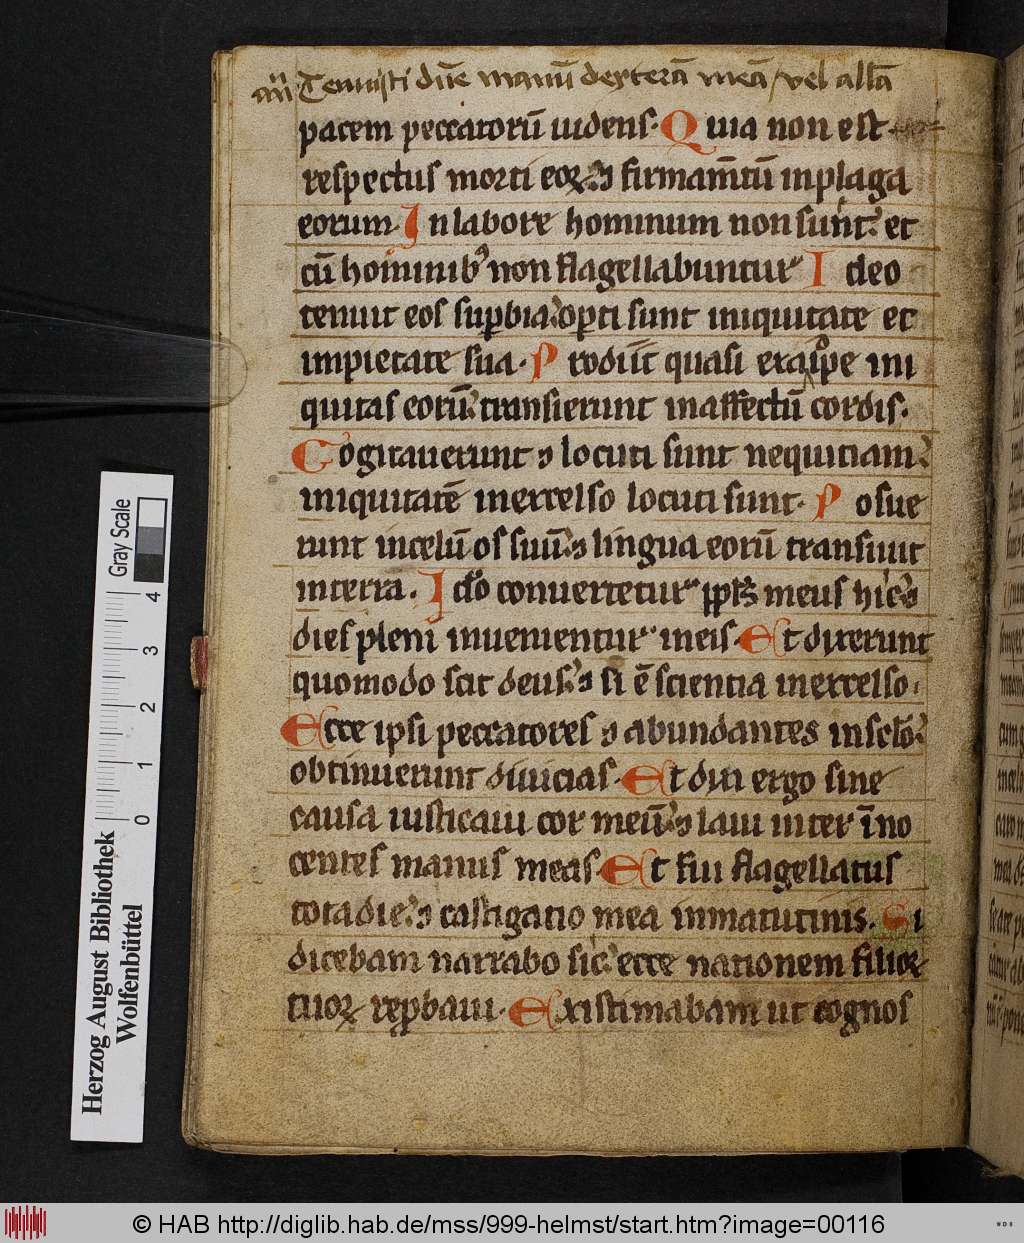 an̄ Tenuisti dūe manū dexterā meā / vel allā
pacem peccatorū uidens. Quia non est
respectus morti eoꝝ ⁊ firmam̄tū inplaga
eorum. In labore hominum non sunt: et
cū hominibꝰ non flagellabuntur. Ideo
tenuit eos supbia: opti sunt iniquitate et
impietate sua. Prodiit quasi exadipe ini
quitas eorū: transierunt inaffectū cordis.
Cogitauerunt ⁊ locuti sunt nequitiam:
iniquitatē inexcelso locuti sunt. Posue
runt incelū os suū: ⁊ lingua eorū transiuit
interra. Ido conuertetur ppls meus hic: ⁊
dies pleni inuenientur ineis. Et dixerunt
quomodo scit deus: ⁊ si ē scientia inexcelso.
Ecce ipsi peccatores ⁊ abundantes insclo:
obtinuerunt diuicias. Et dixi ergo sine
causa iustificaui cor meū: ⁊ laui inter īno
centes manus meas. Et fui flagellatus
totadie: ⁊ castigatio mea inmatutinis. Si
dicebam narrabo sic: ecce nationem filioꝝ
tuoꝝ repbaui. Existimabam ut cognos
Herzog August Bibliothek
Wolfenbüttel
0 1 2 3 4
Gray Scale
© HAB http://diglib.hab.de/mss/999-helmst/start.htm?image=00116